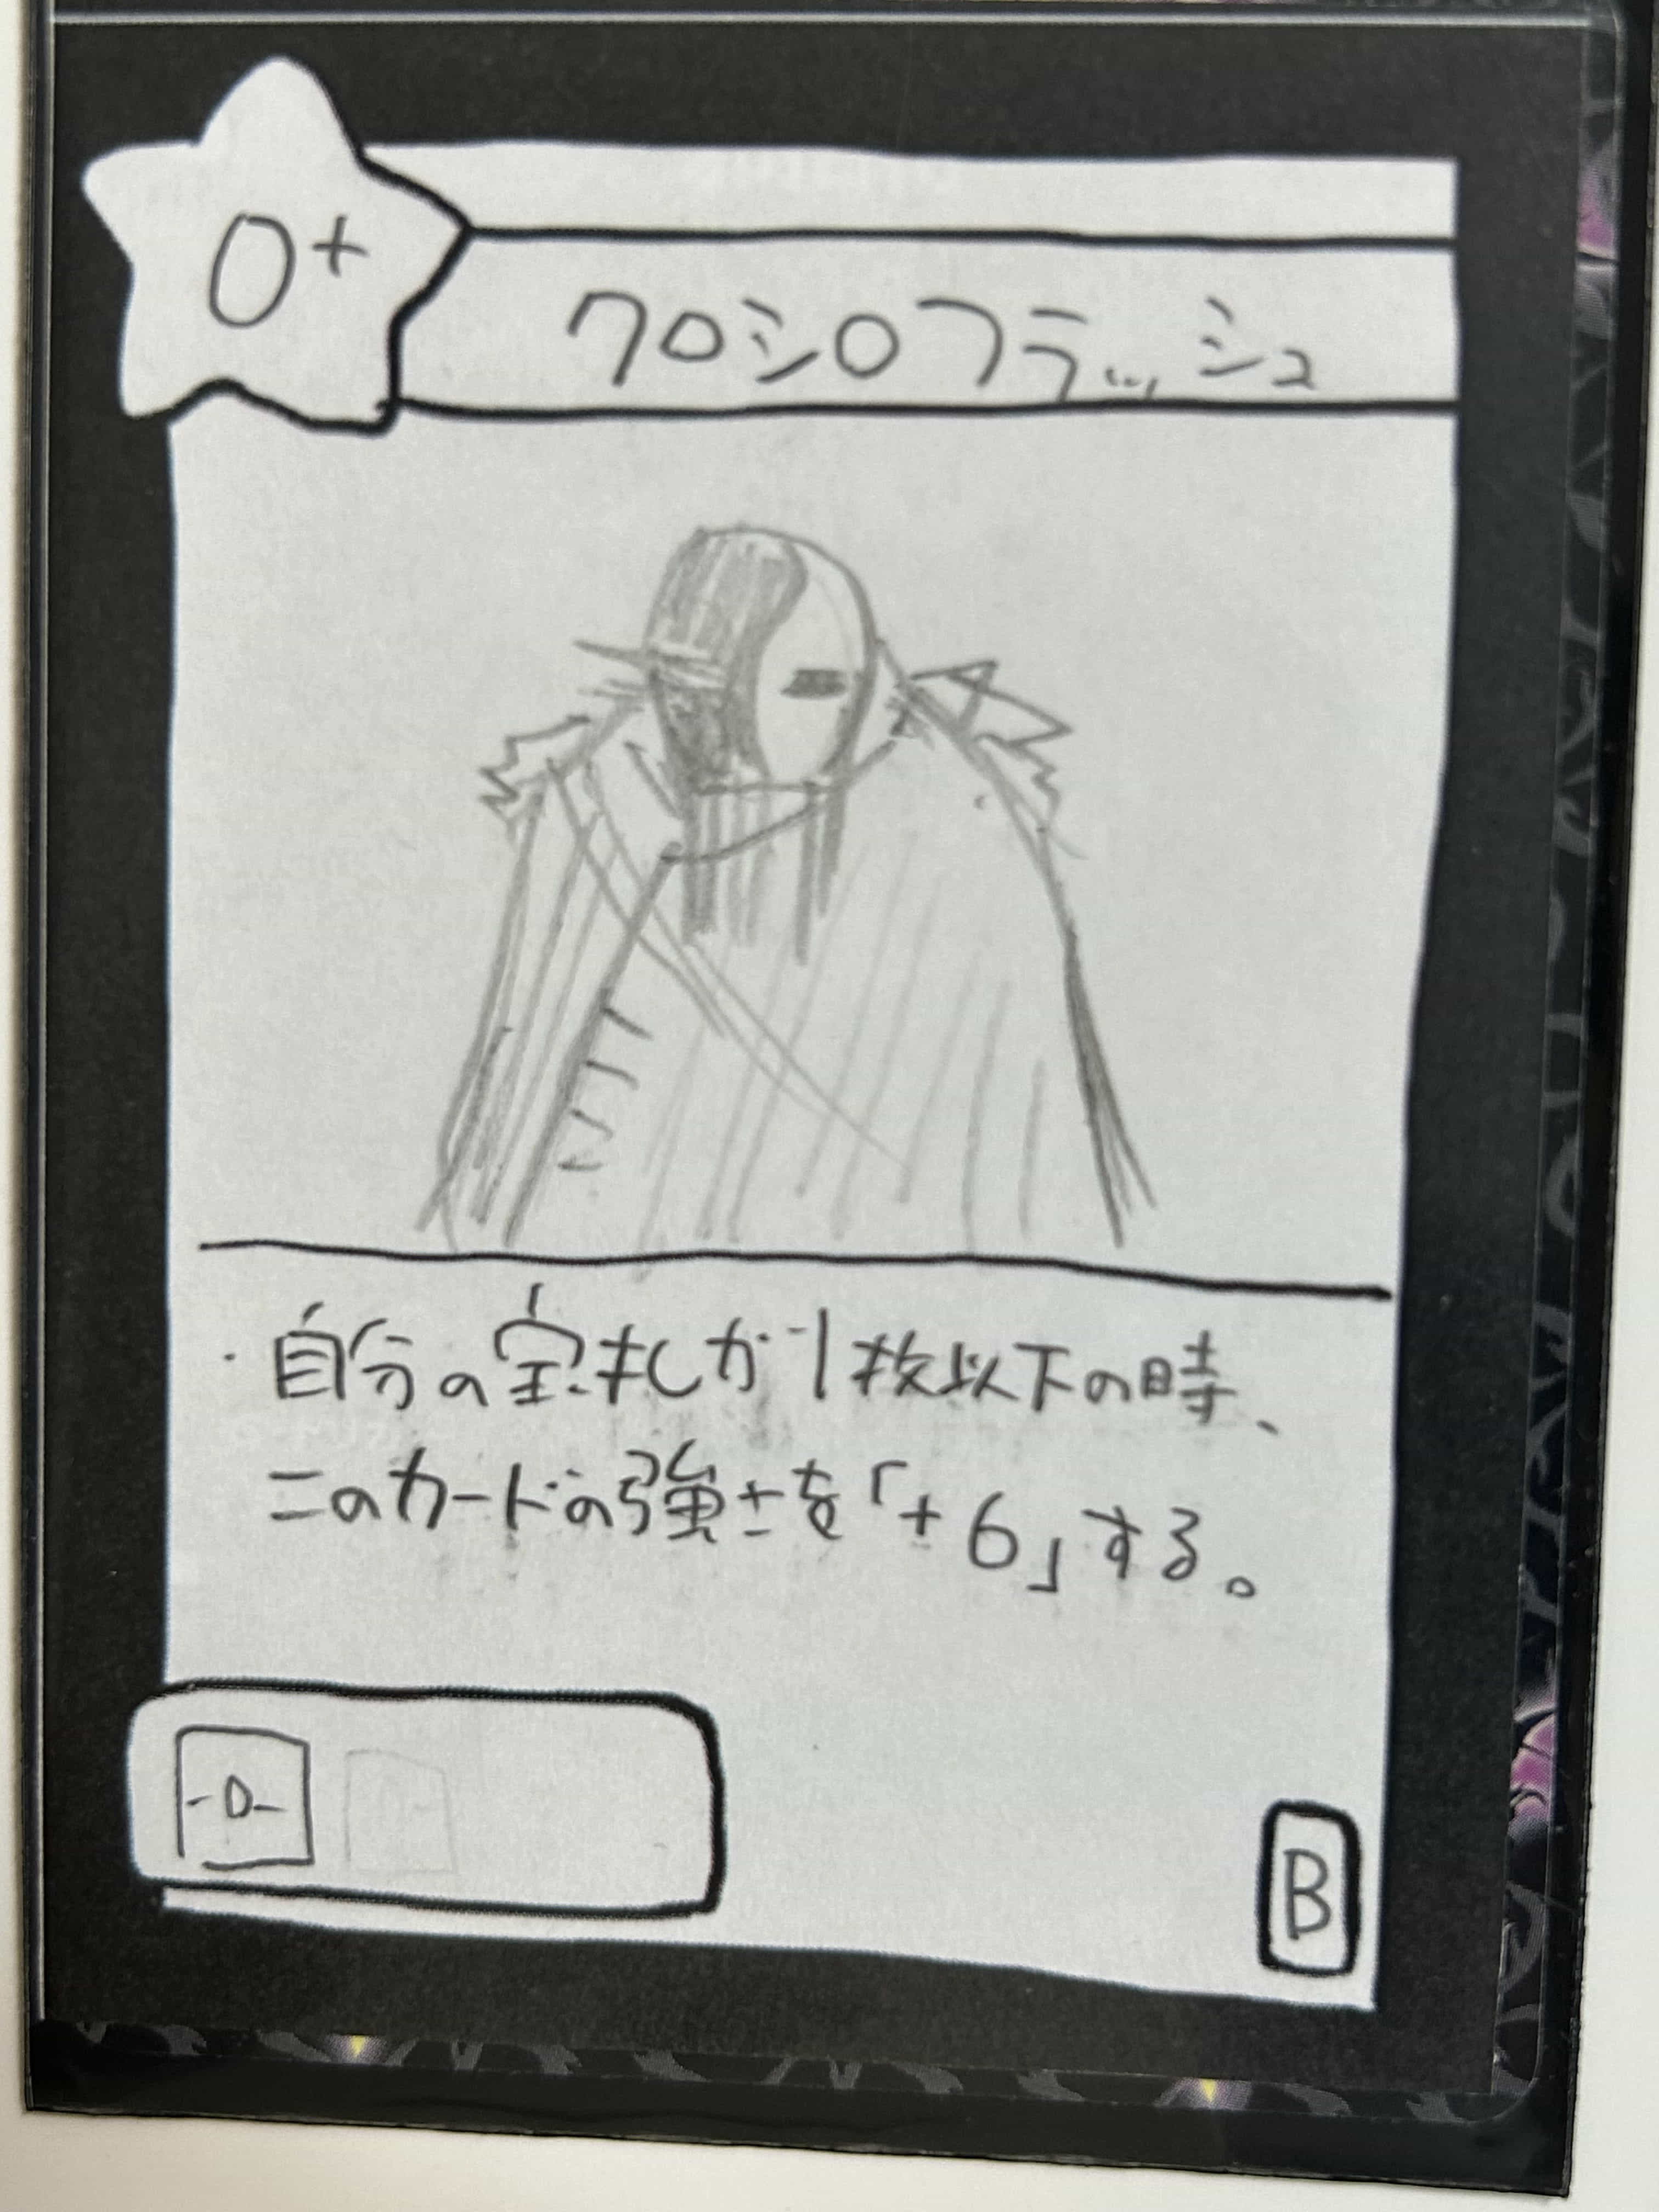 0+
クロシロフラッシュ
・自分の宝札が1枚以下の時、
このカードの強さを「+6」する。
-0-
B